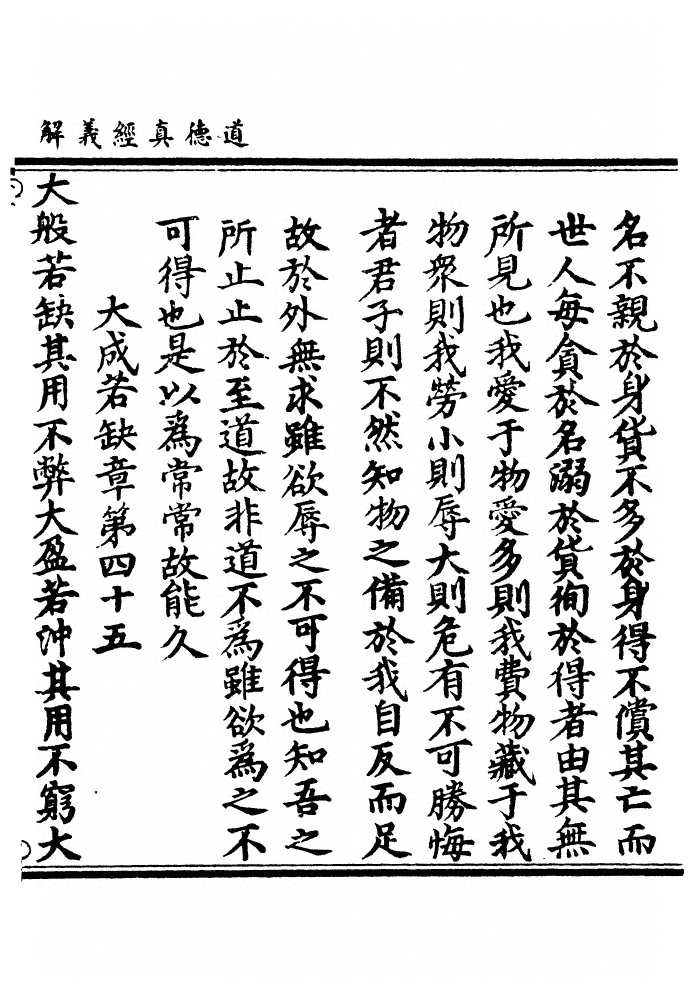 道德真經義解
名不親於身貨不多於身得不償其亡而
世人每貪於名溺於貨徇於得者由其無
所見也我愛于物愛多則我費物藏于我
物衆則我勞小則辱大則危有不可勝悔
者君子則不然知物之備於我自反而足
故於外無求雖欲辱之不可得也知吾之
所止止於至道故非道不爲雖欲爲之不
可得也是以爲常常故能久
大成若缺章第四十五
大般若缺其用不弊大盈若沖其用不窮大